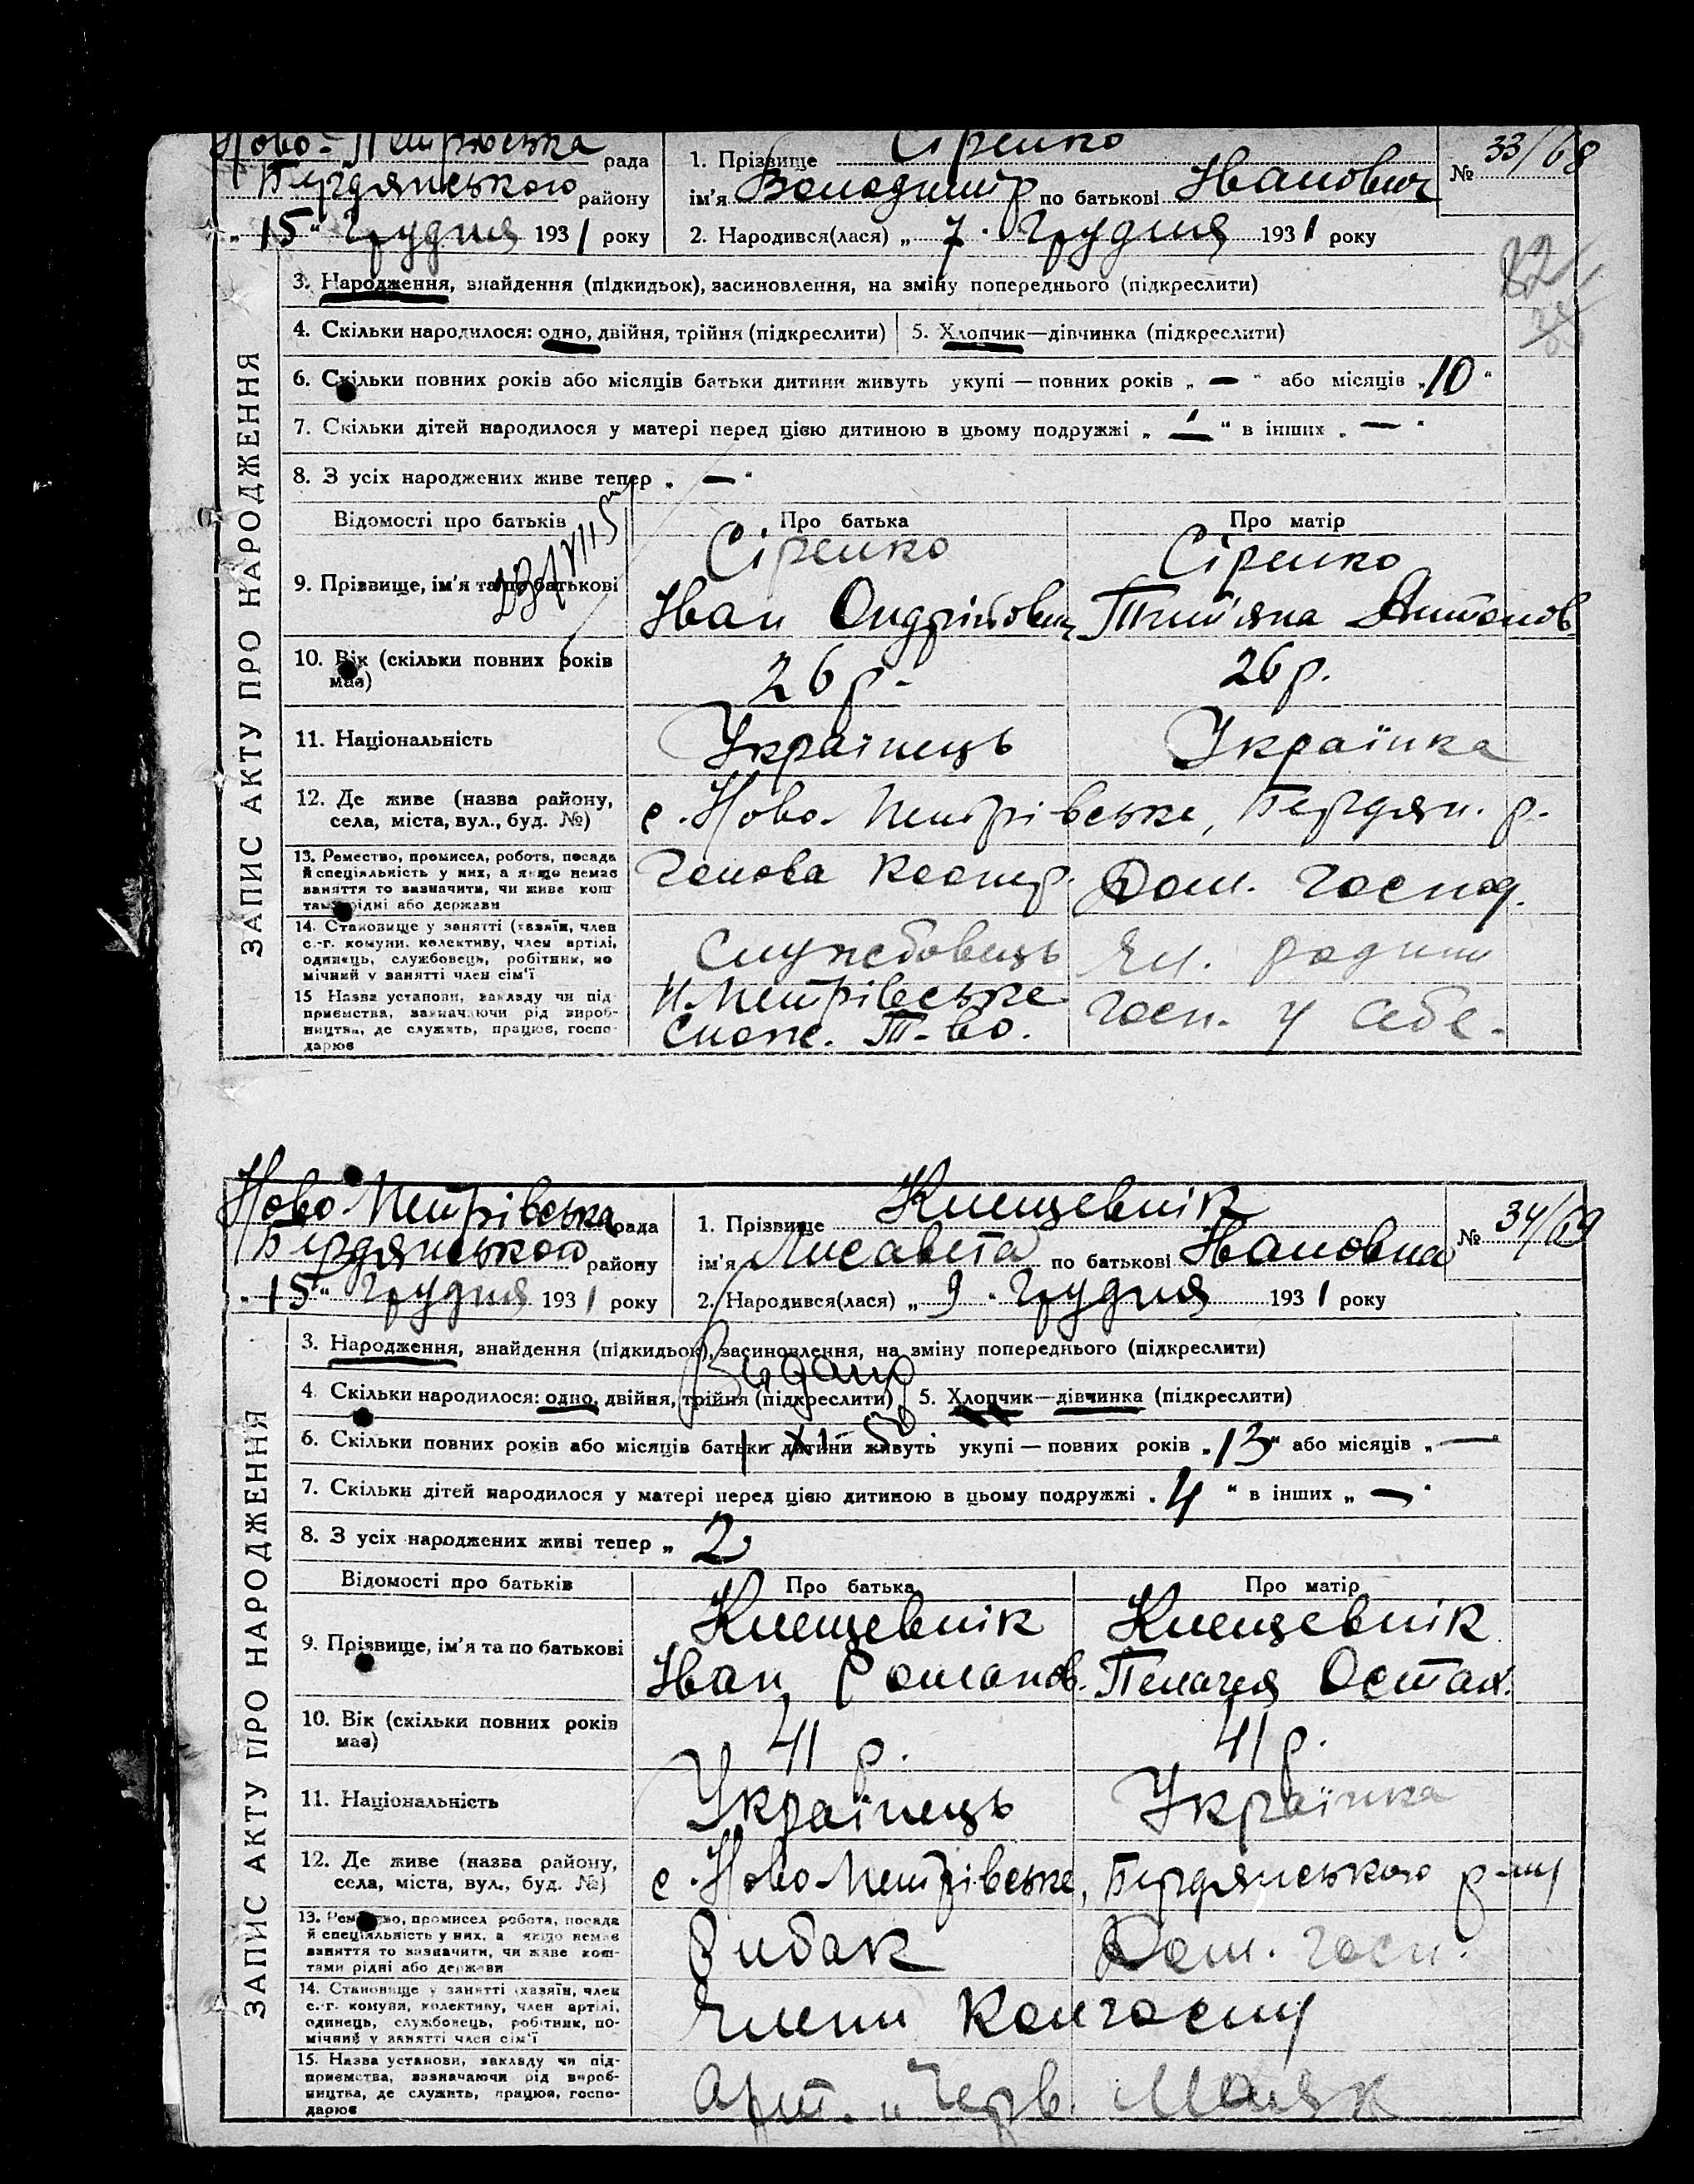 Ново-Петрівська рада
Бердянського району
„15“ Грудня 1931 року
1. Прізвище Сіренко
ім'я Володимир по батькові Іванович
2. Народився(лася) „7“ Грудня 1931 року
№ 33/68
ЗАПИС АКТУ ПРО НАРОДЖЕННЯ
3. Народження, знайдення (підкидьок), засиновлення, на зміну попереднього (підкреслити)
4. Скільки народилося: одно, двійня, трійня (підкреслити) 5. Хлопчик—дівчинка (підкреслити)
6. Скільки повних років або місяців батьки дитини живуть укупі — повних років „—“ або місяців „10“
7. Скільки дітей народилося у матері перед цією дитиною в цьому подружжі „—“ в інших „—“
8. З усіх народжених живе тепер „—“
Відомості про батьків Про батька Про матір
9. Прізвище, ім'я та по батькові
Сіренко Сіренко
Іван Ондрійович Тит'яна Антонов
10. Вік (скільки повних років має) 26 р. 26 р.
11. Національність Українець Українка
12. Де живе (назва району, села, міста, вул., буд. №) с. Ново-Петрівське, Бердян. р.
13. Ремество, промисел, робота, посада й спеціяльність у них, а якщо немає заняття то зазначити, чи живе коштами рідні або держави
Голова Кооper. Дом. Господ.
14. Становище у занятті (хазяїн, член с.-г. комуни, колективу, член артілі, одинець, службовець, робітник, помічний у занятті член сім'ї
Службовець Чл. родини
15 Назва установи, закладу чи підприємства, зазначаючи рід виробництва, де служить, працює, господарює
Н-Петрівське Спож. Т-во. Госп. у себе.
Ново-Петрівська рада
Бердянського району
„15“ Грудня 1931 року
1. Прізвище Клещевнік
ім'я Лисавета по батькові Івановна
2. Народився(лася) „9“ Грудня 1931 року
№ 34/69
ЗАПИС АКТУ ПРО НАРОДЖЕННЯ
3. Народження, знайдення (підкидьок), засиновлення, на зміну попереднього (підкреслити)
4. Скільки народилося: одно, двійня, трійня (підкреслити) 5. Хлопчик—дівчинка (підкреслити)
6. Скільки повних років або місяців батьки дитини живуть укупі — повних років „13“ або місяців „—
7. Скільки дітей народилося у матері перед цією дитиною в цьому подружжі „4“ в інших „—“
8. З усіх народжених живі тепер „2
Відомості про батьків Про батька Про матір
9. Прізвище, ім'я та по батькові
Клещевнік Клещевнік
Іван Романов. Пелагея Остап.
10. Вік (скільки повних років має) 41 р. 41 р.
11. Національність Українець Українка
12. Де живе (назва району, села, міста, вул., буд. №) с. Ново-Петрівське, Бердянського р-ну
13. Ремество, промисел робота, посада й спеціяльність у них, а якщо немає заняття то зазначити, чи живе коштами рідні або держави
Рибак Дом. Госп.
14. Становище у занятті (хазяїн, член с.-г. комуни, колективу, член артілі, одинець, службовець, робітник, помічний у занятті член сім'ї
Члени Колгоспу
15. Назва установи, закладу чи підприємства, зазначаючи рід виробництва, де служить, працює, господарює
Арт. „Черв. Маяк